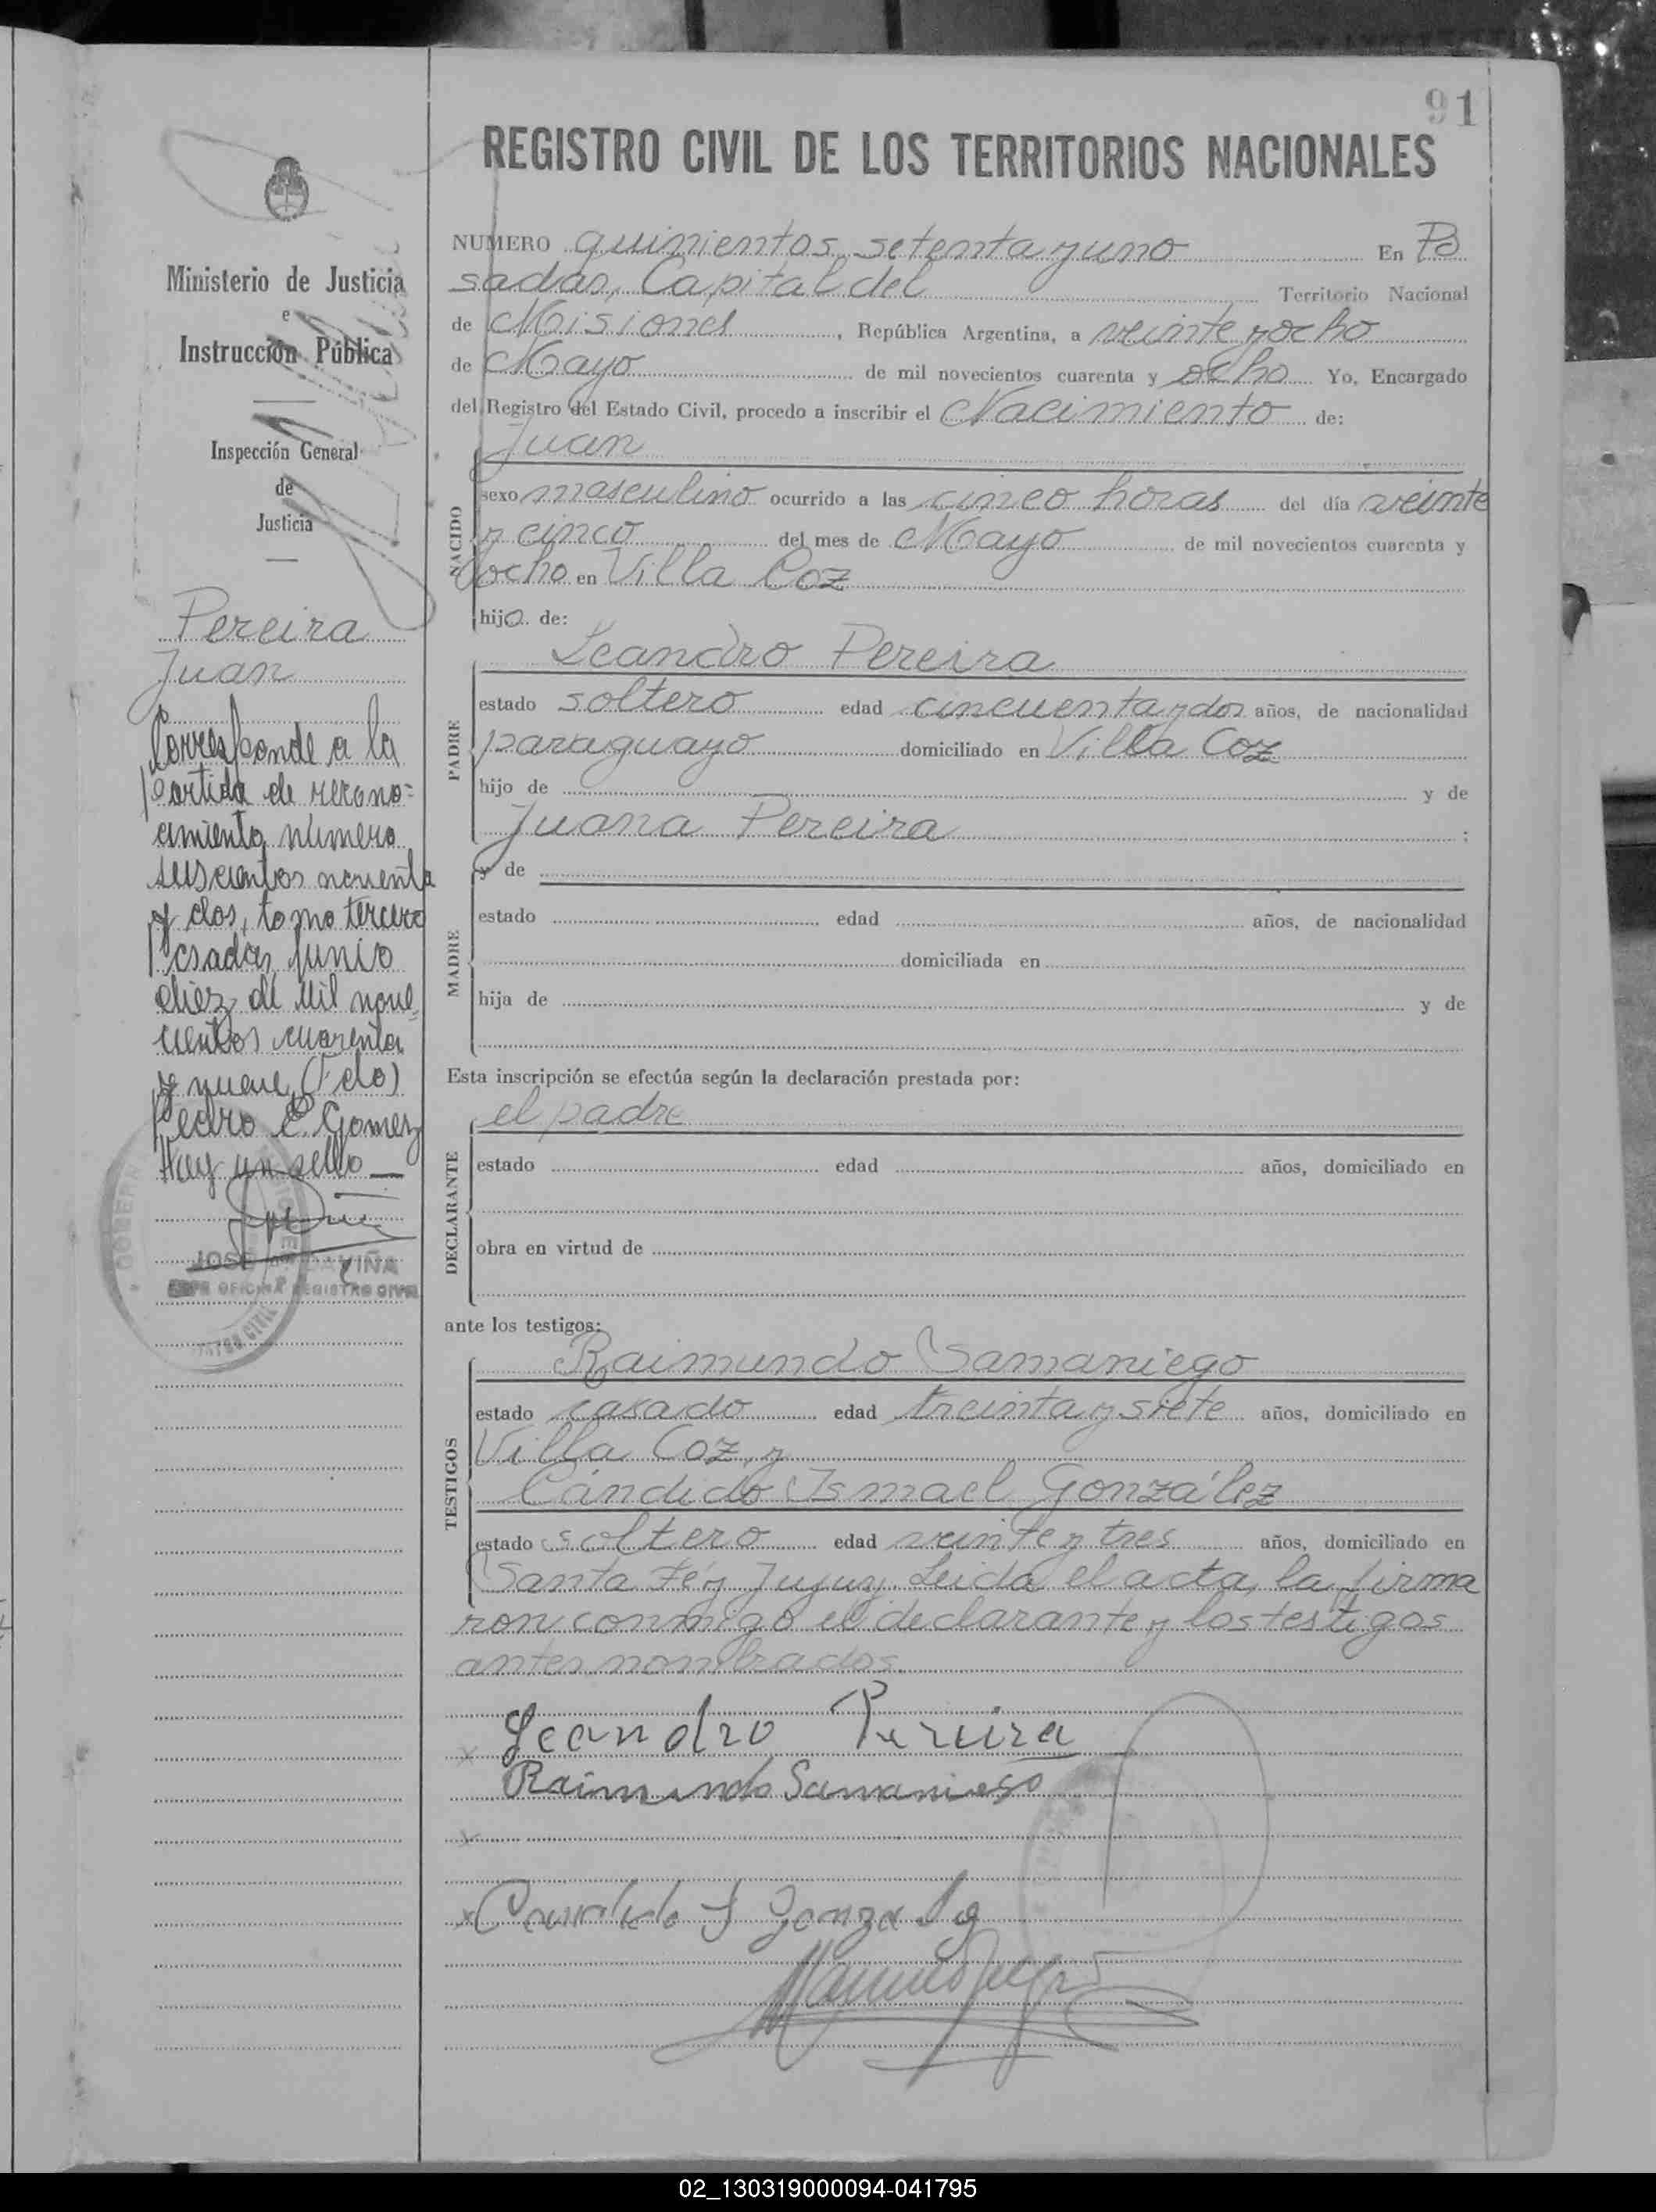 91
REGISTRO CIVIL DE LOS TERRITORIOS NACIONALES
Ministerio de Justicia
e
Instrucción Pública
Inspección General
de
Justicia
Pereira
Juan
Corresponde a la
partida de recono=
cimiento número
seiscientos noventa
y dos, tomo tercero
Posadas, junio
diez de mil nove
cientos cuarenta
y nueve (Fdo)
Pedro E. Gomez
Hay un sello
JOSE VIÑA
OFICINA REGISTRO CIVIL
NUMERO quinientos setenta y uno En Po
sadas, Capital del Territorio Nacional
de Misiones, República Argentina, a veinte y ocho
de Mayo de mil novecientos cuarenta y ocho Yo, Encargado
del Registro del Estado Civil, procedo a inscribir el Nacimiento de:
Juan
NACIDO
sexo masculino ocurrido a las cinco horas del día veinte
y cinco del mes de Mayo de mil novecientos cuarenta y
ocho en Villa Coz
hijo de:
Leandro Pereira
PADRE
estado soltero edad cincuenta y dos años, de nacionalidad
paraguayo domiciliado en Villa Coz
hijo de y de
Juana Pereira ;
y de
MADRE
estado edad años, de nacionalidad
domiciliada en
hija de y de
Esta inscripción se efectúa según la declaración prestada por:
el padre
DECLARANTE
estado edad años, domiciliado en
obra en virtud de
ante los testigos:
Raimundo Samaniego
TESTIGOS
estado casado edad treinta y siete años, domiciliado en
Villa Coz, y
Cándido Ismael González
estado soltero edad veinte y tres años, domiciliado en
Santa Fé y Jujuy. Leida el acta, la firma
ron conmigo el declarante y los testigos
antes nombrados.
Leandro Pereira
Raimundo Samaniego
Candido I Gonzalez
02_130319000094-041795